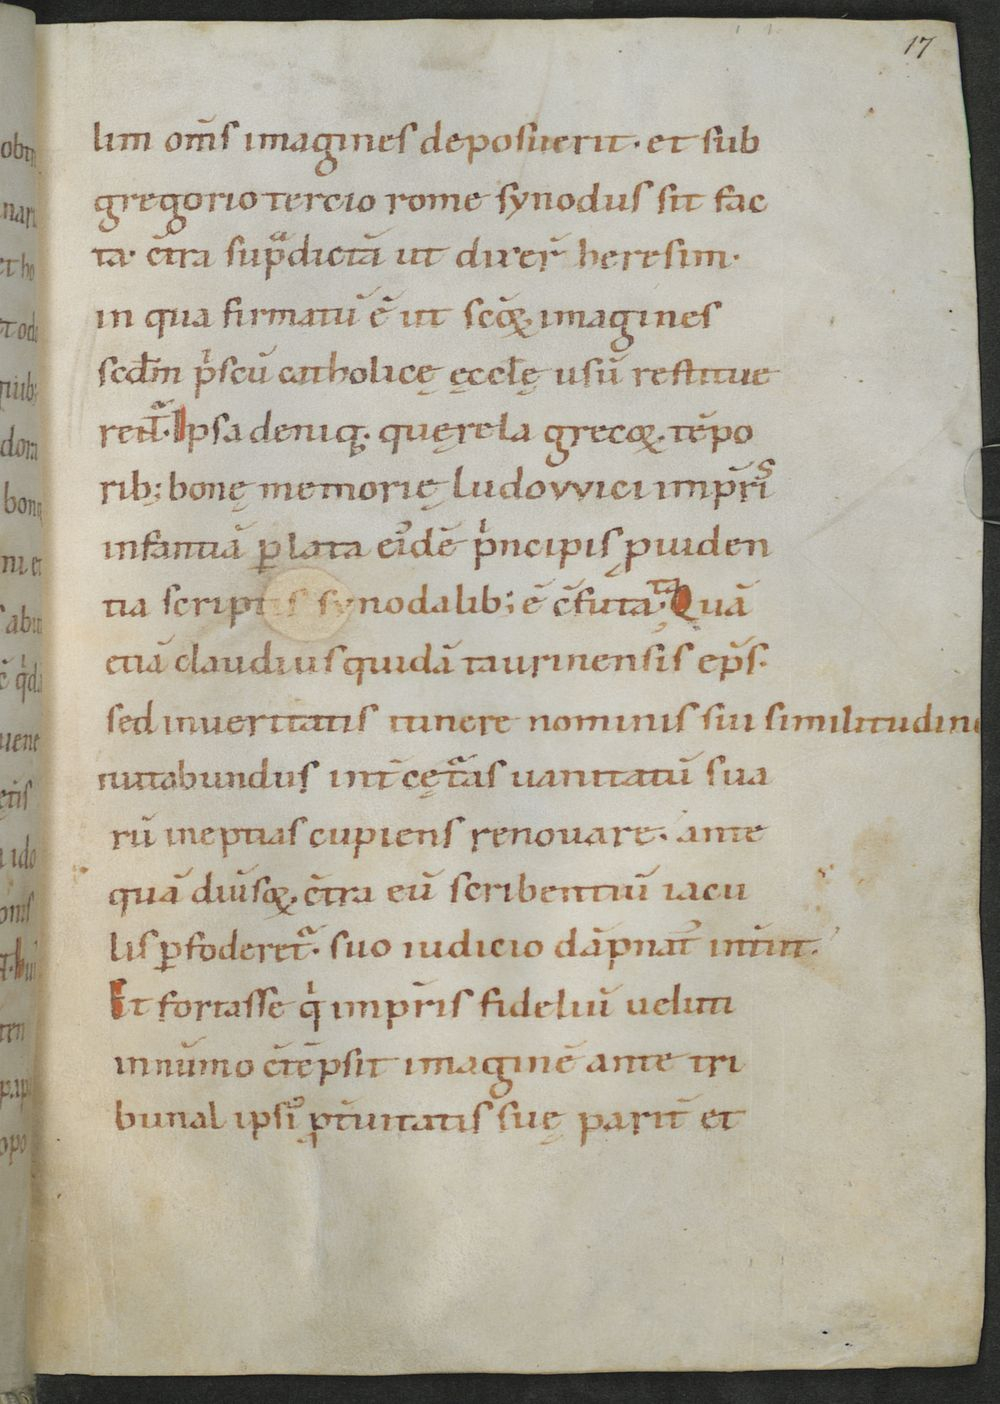 17
lim om̄s imagines deposuerit· et sub
gregorio tercio rome synodus sit fac
ta· c̄tra sup̱dictā ut direr̄ heresim·
in qua firmatū ē ut sc̄oꝝ imagines
scd̄m p̍scū catholicę ęccłę usū restitue
ret᷑· Ipsa deniq; quęrela grecoꝝ tēpo
rib; bonę memorię ludovvici imp̄ris
infantiā ꝑlata eı̓dē p̍ncipis ꝓuiden
tia scriptis synodalib; ē c̄futata· Quā
etiā claudius quidā taurinensis ep̄s·
sed in ueritatis itinere nominis sui similitudine
nutabundus int̄ cęt̄as uanitatū sua
rū ineptias cupiens renouare· ante
quā diūsoꝝ c̄tra eū scribentiū iacu
lis ꝑfoderet᷑· suo iudicio dāpnat᷑ int̄iit·
Et fortasse q̍ imp̄ris fideliū uelut
in nūmo c̄tēpsit imaginē ante tri
bunal ipsı̓ ꝓt̄uitatis suę parit̄ et